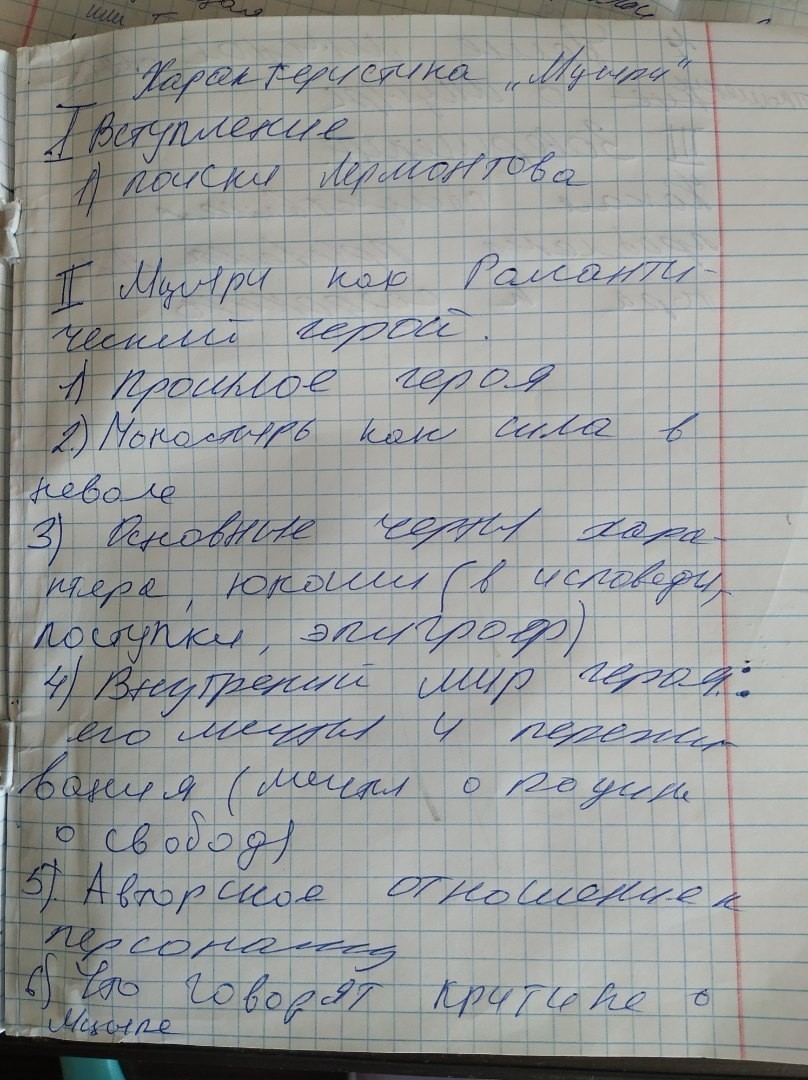 Характеристика „Мцыри"
I Вступление
1) поиски Лермонтова
II Мцыри как Романти-
ческий герой.
1) Прошлое героя
2.) Монастырь как сила в
неволе
3) Основные черты хара-
ктера, юноши (в исповеди,
поступки, эпиграф)
4) Внутрений мир героя:
его мечты и пережи-
вания (мечты о родине
о свобод)
5). Авторское отношение к
персонажу
6) Что говорят критике о
Мцыре